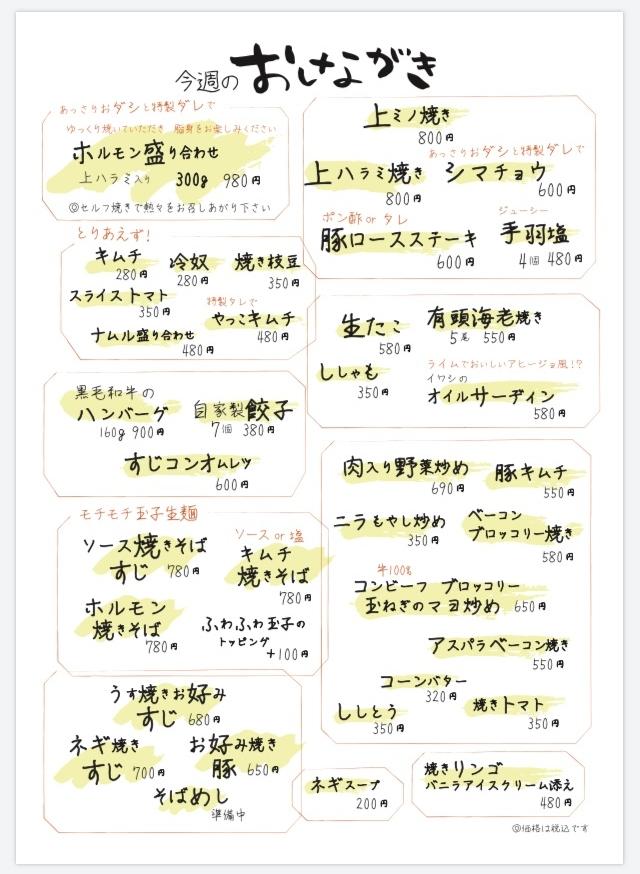 今週の おしながき
あっさりおダシと特製ダレで
ゆっくり焼いていただき 脂身をお楽しみください
ホルモン盛り合わせ
上ハラミ入り 300g 980円
◎セルフ焼きで熱々をお召しあがり下さい
上ミノ焼き
800円
あっさりおダシと特製ダレで
上ハラミ焼き シマチョウ
800円 600円
ポン酢 or タレ ジューシー
豚ロースステーキ 手羽塩
600円 4個 480円
とりあえず!
キムチ 冷奴 焼き枝豆
280円 280円 350円
スライストマト
350円
特製タレで
やっこキムチ
480円
ナムル盛り合わせ
480円
生たこ
580円
有頭海老焼き
5尾 550円
ししゃも
350円
ライムでおいしいアヒージョ風!?
イワシの
オイルサーディン
580円
黒毛和牛の
ハンバーグ
160g 900円
自家製餃子
7個 380円
すじコンオムレツ
600円
肉入り野菜炒め
690円
豚キムチ
550円
ニラもやし炒め
350円
ベーコン
ブロッコリー焼き
580円
牛100%
コンビーフ ブロッコリー
玉ねぎのマヨ炒め 650円
アスパラベーコン焼き
550円
コーンバター
320円
ししとう
350円
焼きトマト
350円
モチモチ玉子生麺
ソース焼きそば
すじ 780円
ソース or 塩
キムチ
焼きそば
780円
ホルモン
焼きそば
780円
ふわふわ玉子の
トッピング
+100円
うす焼きお好み
すじ 680円
ネギ焼き
すじ 700円
お好み焼き
豚 650円
そばめし
準備中
ネギスープ
200円
焼きリンゴ
バニラアイスクリーム添え
480円
◎価格は税込です